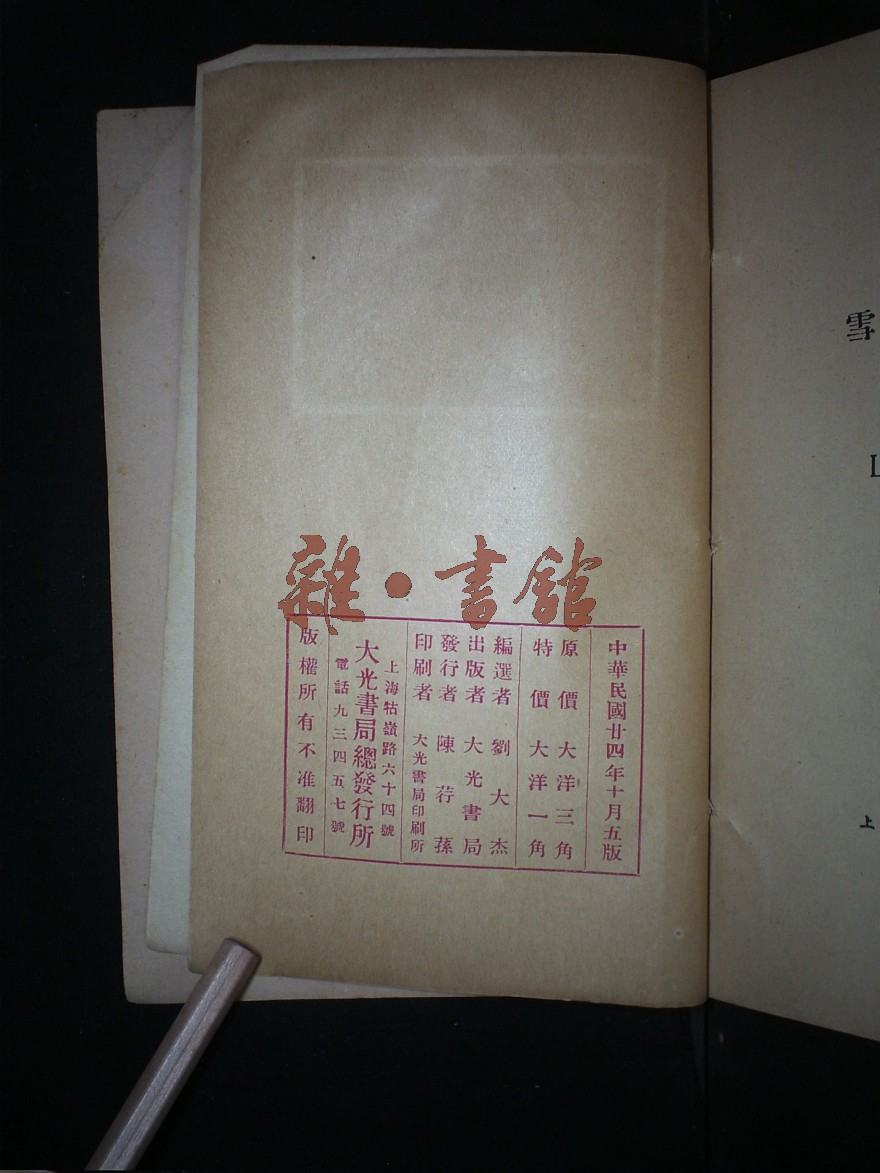 雜・書館
中華民國廿四年十月五版
原價大洋三角
特價大洋一角
編選者 劉大杰
出版者 大光書局
發行者 陳荇蓀
印刷者 大光書局印刷所
上海牯嶺路六十四號
大光書局總發行所
電話九三四五七號
版權所有不准翻印
雪
上